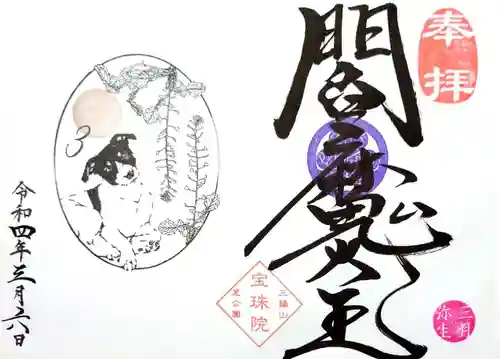 奉拝
閻魔大王
三縁山
宝珠院
芝公園
三月
弥生
3
令和四年三月二六日